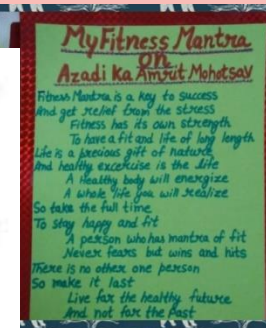 My Fitness Mantra
on
Azadi Ka Amrit Mohotsav
Fitness Mantra is a key to success
And get relief from the stress
Fitness has its own strength
To have a fit and life of long length
Life is a precious gift of nature
And healthy excercise is the life
A Healthy body will energize
A whole life you will realize
So take the full time
To stay happy and fit
A person who has mantra of fit
Never fears but wins and hits
There is no other one person
So make it last
Live for the healthy future
And not for the Past